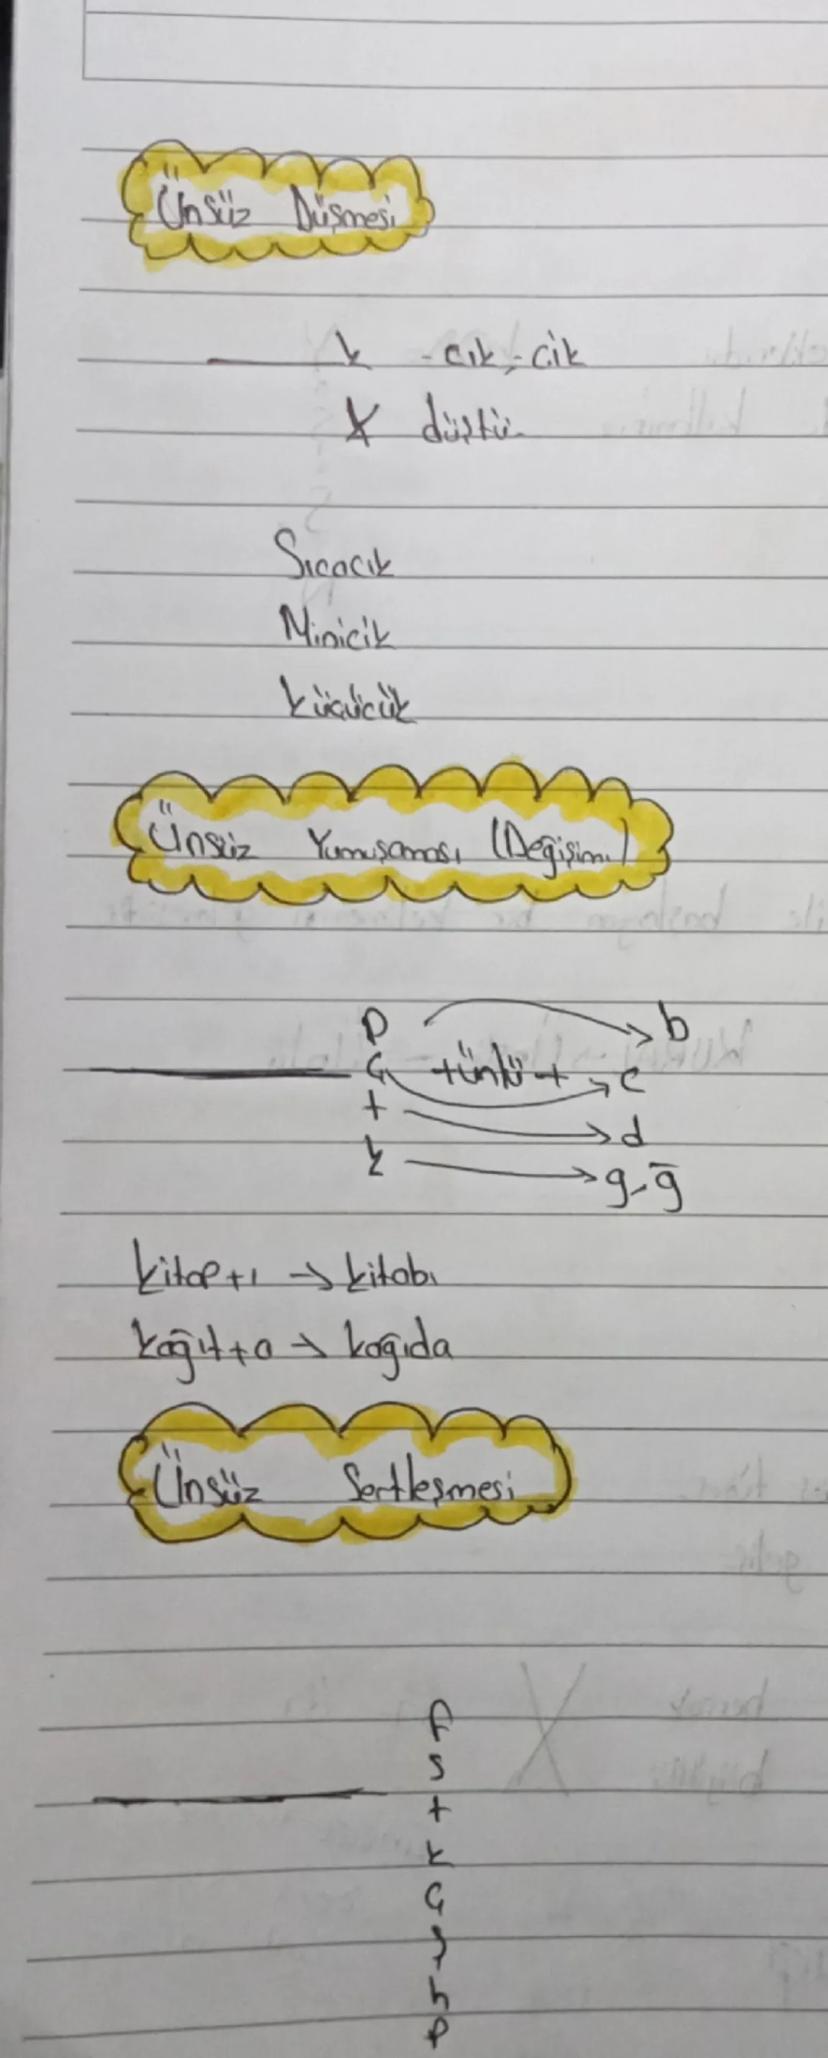 Ünsüz Düşmesi
k -cık, -cik
k düştü.
Sıcacık
Minicik
Küçücük
Ünsüz Yumuşaması (Değişimi)
p → b
ç +ünlü+ → c
t → d
k → g-ğ
kitap+ı → kitabı
kağıt+a → kağıda
Ünsüz Sertleşmesi
f
s
t
k
ç
ş
h
p